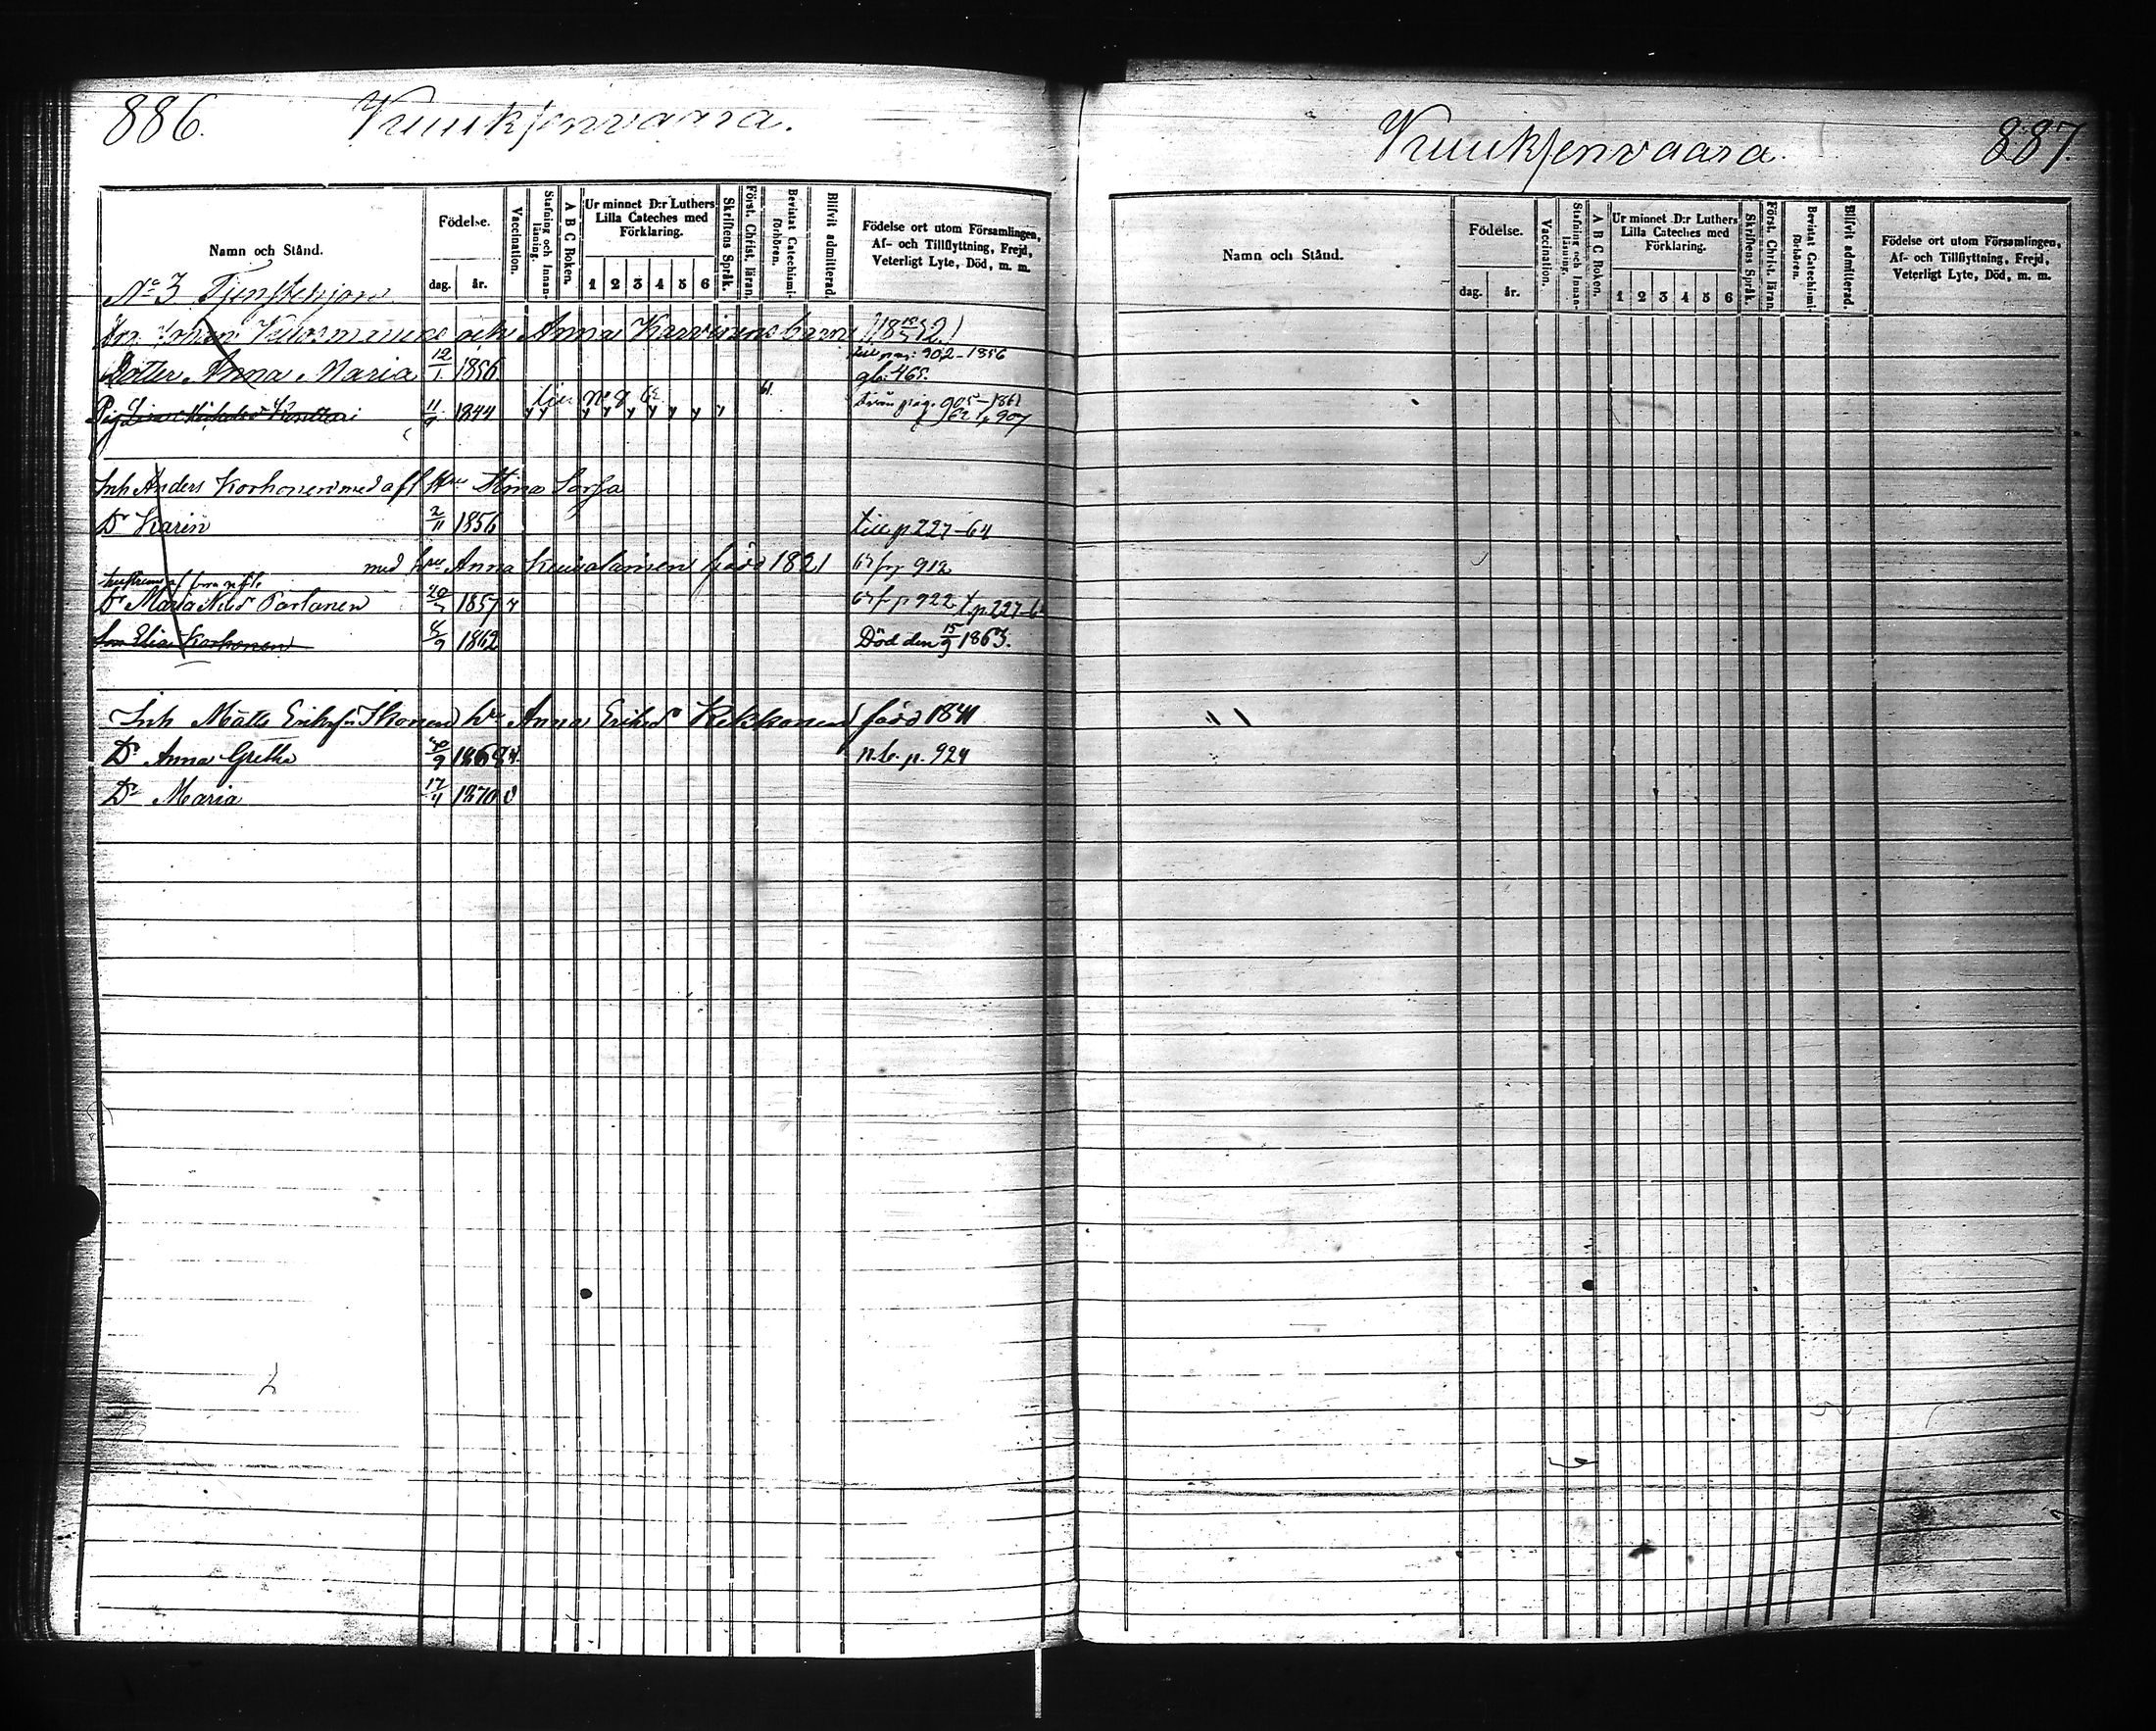 886. Kruukjenvaara.
Namn och Stånd. Födelse. dag. år. Vaccination. Stafning och Innanläsning. A B C Boken. Ur minnet D:r Luthers Lilla Cateches med Förklaring. 1 2 3 4 5 6 Skriftens Språk. Först. Christ. läran. Bevistat Catechismiförhören. Blifvit admitterad. Födelse ort utom Församlingen, Af- och Tillflyttning, Frejd, Veterligt Lyte, Död, m. m.
No 3 Tjenstehjon
Johan och Anna barn
Dotter Anna Maria 12/1 1856 till pag: 902-1856
gla: 465.
till No 8 62 61 från pag. 905-1861
Pig 11/9 1844 62 907
Inh Anders Korhonen med afl Hru Stina Sorsa
Dr Karin 2/11 1856 till p 227-64
med hru Anna född 1821 912
Dr Maria Nilsdr Partanen 20/3 1857 p 922 p 227-6
Son Elias Korhonen 4/9 1862 Död den 15/9 1863.
Inh Matts Eriksson Ikonen hru Anna Eriksdr Kekkonen född 1841
Dr Anna Gretha /9 1868 n.b. p. 924
Dr Maria 17/4 1870
Kruukjenvaara. 887.
Namn och Stånd. Födelse. dag. år. Vaccination. Stafning och Innanläsning. A B C Boken. Ur minnet D:r Luthers Lilla Cateches med Förklaring. 1 2 3 4 5 6 Skriftens Språk. Först. Christ. läran. Bevistat Catechismiförhören. Blifvit admitterad. Födelse ort utom Församlingen, Af- och Tillflyttning, Frejd, Veterligt Lyte, Död, m. m.